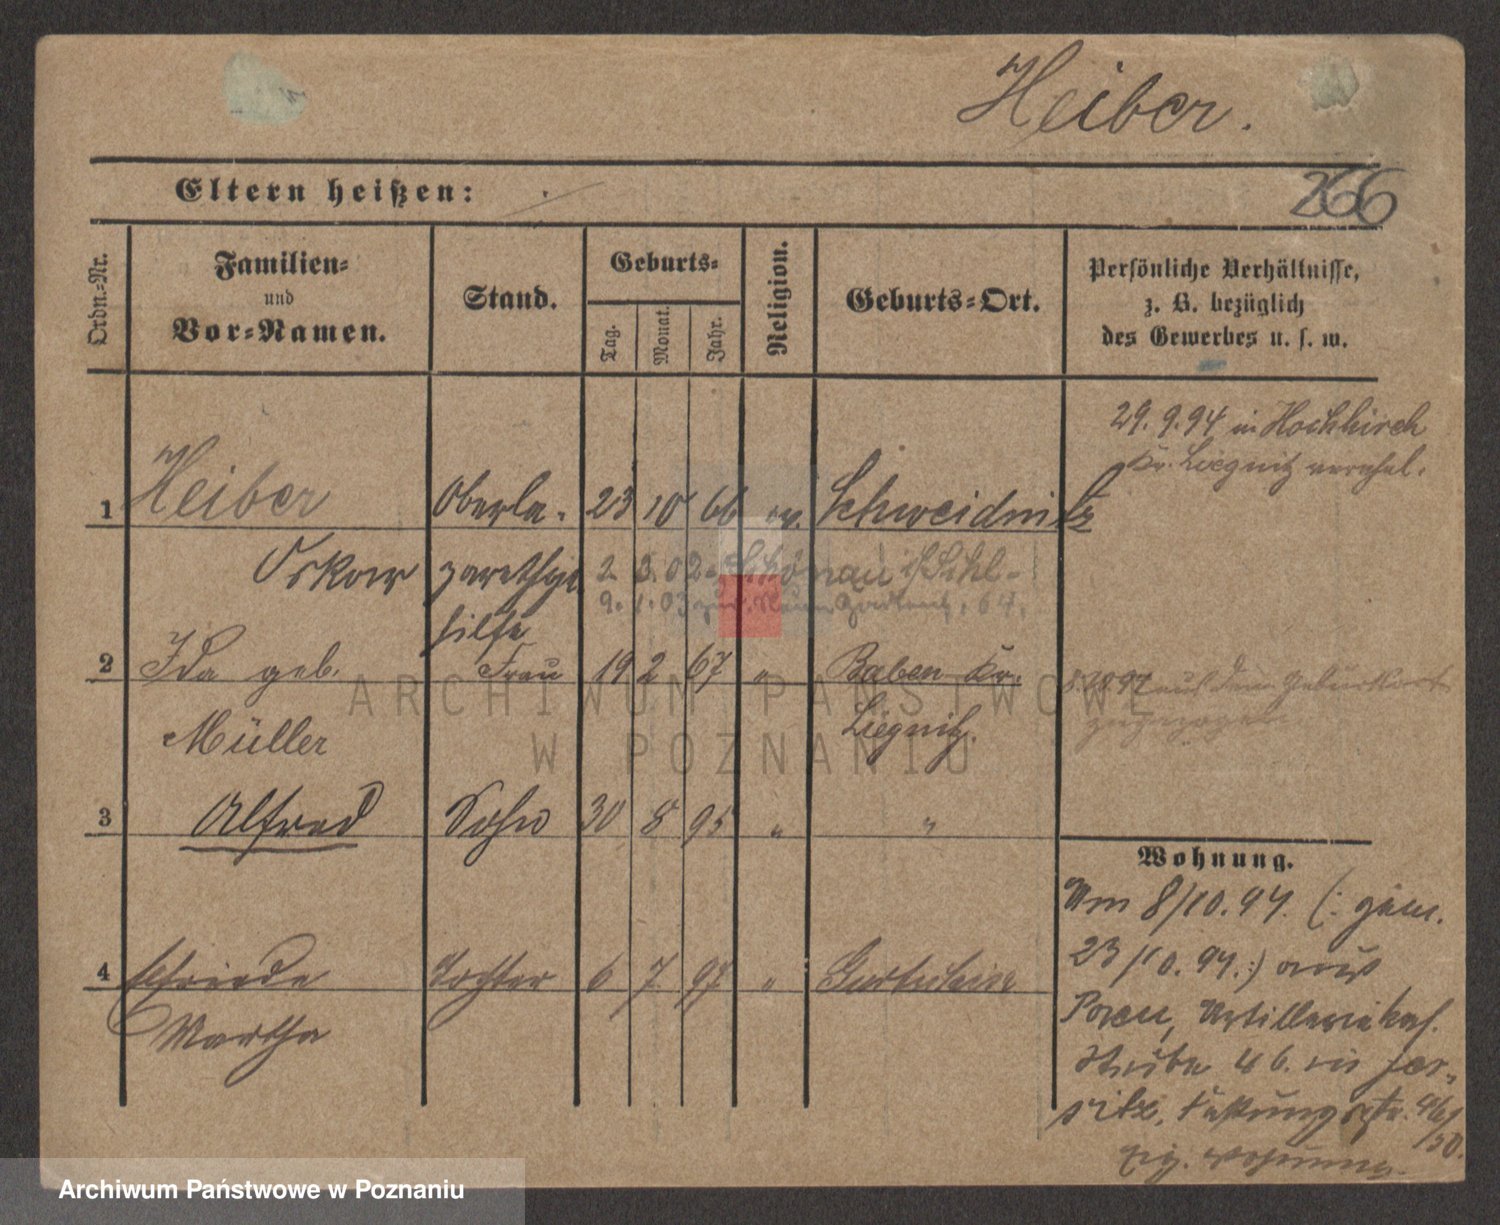 Heiber.
266
Eltern heißen:
Ordn.-Nr.
Familien-
und
Vor-Namen.
Stand.
Geburts-
Tag.
Monat.
Jahr.
Religion.
Geburts-Ort.
Persönliche Verhältnisse,
z. B. bezüglich
des Gewerbes u. s. w.
29. 9. 94 in Hochkirch
Kr. Liegnitz verehel.
1 Heiber Oberla- 23 10 66 ev. Schweidnitz
Oskar zarethge
hilfe
2. 3. 02 Schönau
9. 1. 03 zur. Neue Gartenstr. 64.
2 Ida geb. Frau 19 2 67 " Baben Kr.
Müller Liegnitz.
aus dem Geburtsort
zugezogen
3 Alfred Sohn 30 8 95 " "
4 Elfriede Tochter 6 7 97 "
Martha
Wohnung.
Um 8/10. 94. (: gem.
23/10. 94. :) aus
Posen, Artillerie
Stube 46. in Jer-
sitz,
eig. Wohnung.
ARCHIWUM PAŃSTWOWE
W POZNANIU
Archiwum Państwowe w Poznaniu